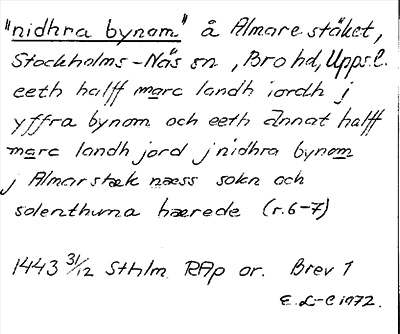 "nidhra bynom" å Almare stäket,
Stockholms-Näs sn, Bro hd, Uppsl.
eeth halff marc landh iordh j
yffra bynom och eeth annat halff
marc landh jord j nidhra bynom
j Almarstæk næss sokn och
solenthuna hærede (r.6-7)
1443 31/12 Sthlm RAp or. Brev 1
E. L-C 1972.